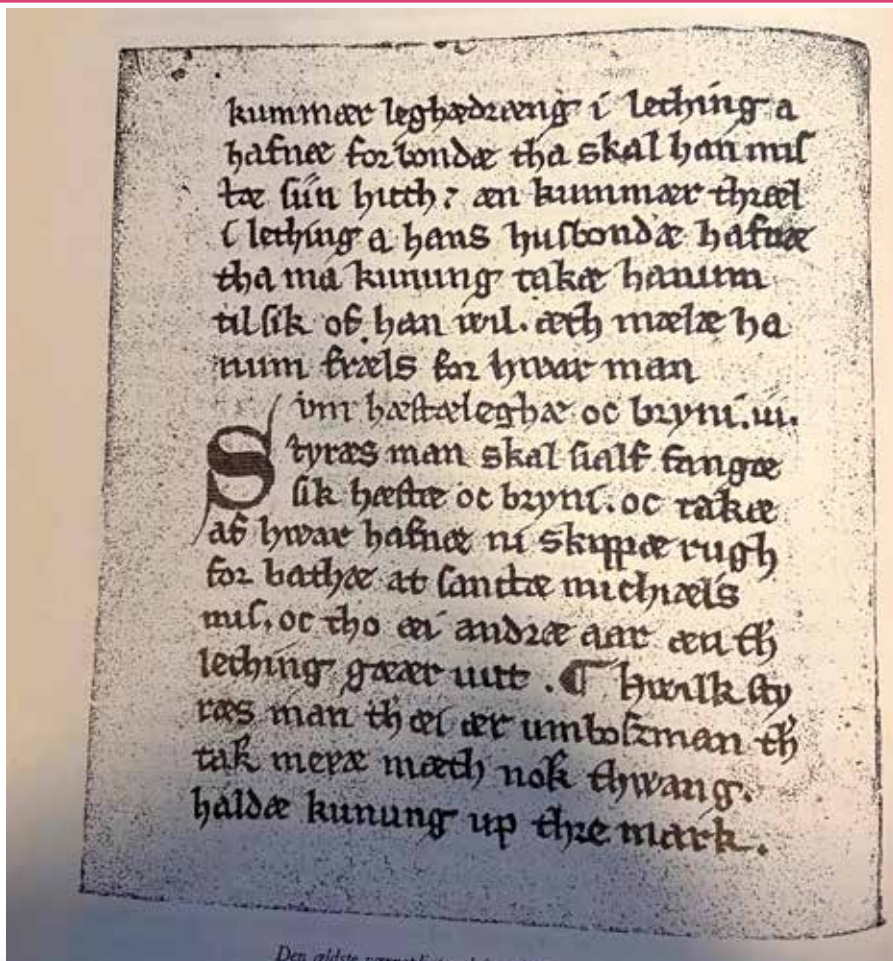 kummær leghædræng i lething a
hafnæ for bondæ tha skal han mis
tæ sin huth; æn kummær thræl
i lething a hans husbondæ hafnæ
tha ma kunung takæ hanum
til sik of han wil. æth mælæ ha
num fræls for hwar man
um hæstæleghæ oc bryni. iii.
Styræs man skal sialf fangæ
sik hæstæ oc bryni. oc takæ
af hwar hafnæ ni skippæ rugh
for bathæ at sanctæ michiæls
mis. oc tho æi andræ aar æn th
lething gæær uut. ¶ Hwilk sty
ræs man th æi ær umbotzman th
tak meræ mæth nok thwang.
haldæ kunung up thre mark.
Den ældste